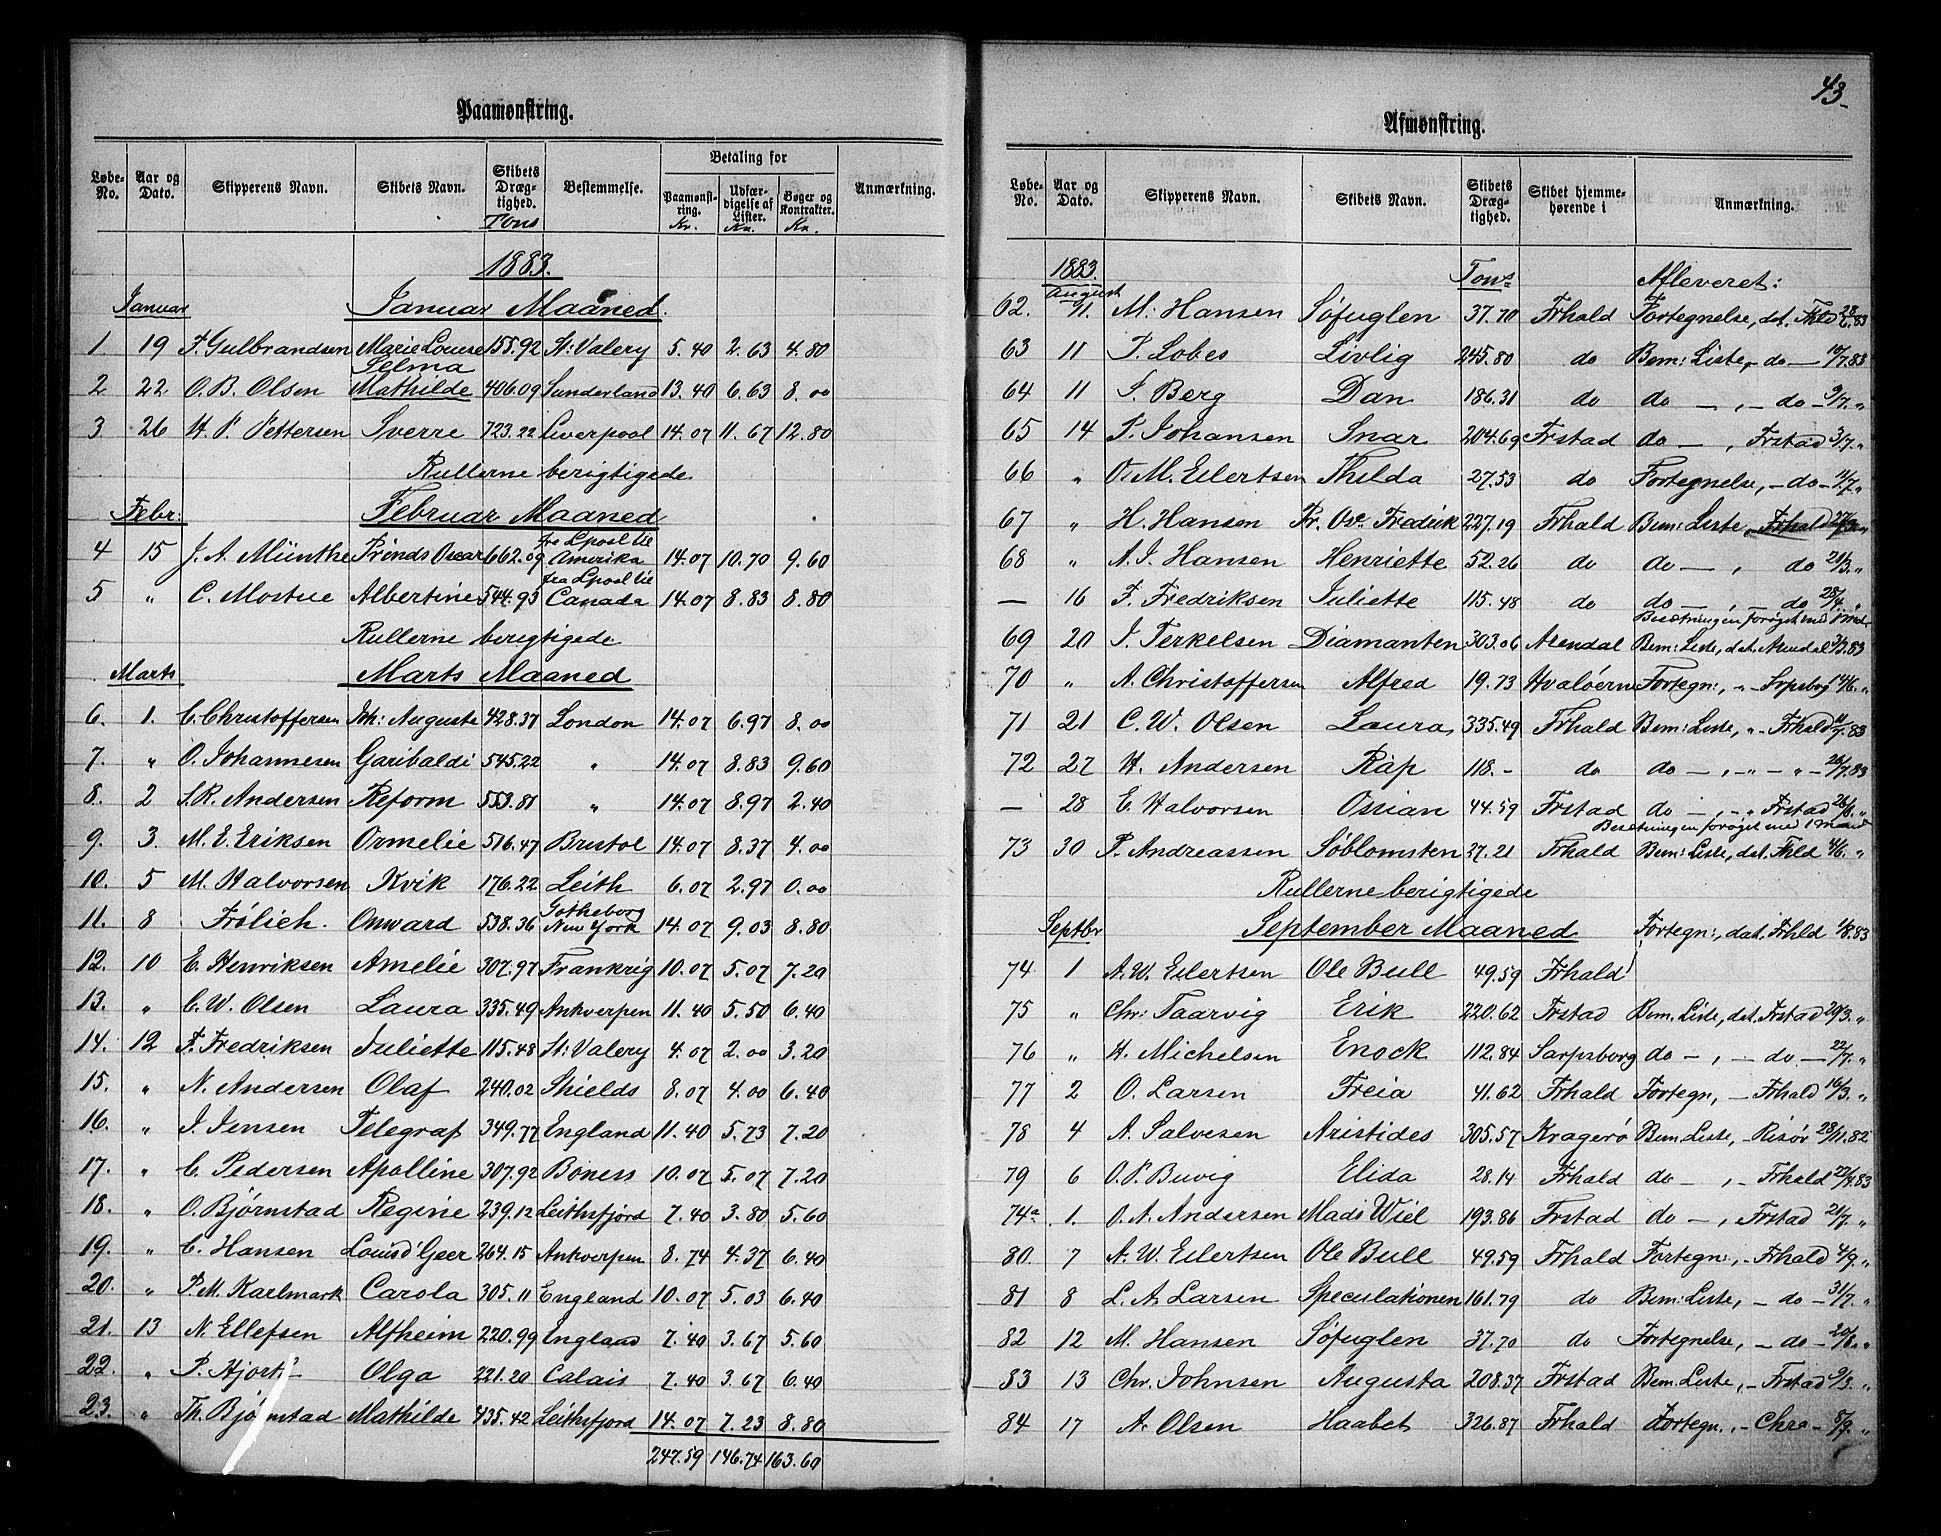 Paamønstring.
Løbe-No. Aar og Dato. Skipperens Navn. Skibets Navn. Skibets Dræg-tighed. Tons Bestemmelse. Betaling for Paamønst-ring. Kr. Udfær-digelse af Lister. Kr. Bøger og Kontrakter. Kr. Anmærkning.
1883.
Januar Januar Maaned.
1 19 F. Gulbrandsen Marie Louise 155.92 St: Valery 5.40 2.63 4.80
2 22 O. B. Olsen Selma Mathilde 406.09 Sunderland 13.40 6.63 8.00
3 26 H. P. Pettersen Sverre 723.22 Liverpool 14.07 11.67 12.80
Rullerne berigtigede
Febr: Februar Maaned
4 15 J. A. Münthe Prinds Oscar 662.09 fra Lpool til Amerika 14.07 10.70 9.60
5 " C. Mostue Albertine 544.93 fra Lpool til Canada 14.07 8.83 8.80
Rullerne berigtigede
Marts Marts Maaned
6. 1. C. Christoffersen Joh: Auguste 428.37 London 14.07 6.97 8.00
7. " O. Johannesen Garibaldi 545.22 " 14.07 8.83 9.60
8. 2 S. R. Andersen Reform 553.81 " 14.07 8.97 2.40
9. 3. M. E. Eriksen Ormelie 516.47 Bristol 14.07 8.37 4.00
10. 5 M. Halvorsen Kvik 176.22 Leith 6.07 2.97 0.00
11. 8 Frølich. Onward 538.36 Gotheborg New York 14.07 9.03 8.80
12. 10 E. Henriksen Amelie 307.97 Frankrig 10.07 5.07 7.20
13. " C. W. Olsen Laura 335.49 Antverpen 11.40 5.50 6.40
14. 12 F. Fredriksen Juliette 115.48 St: Valery 4.07 2.00 3.20
15. " N. Andersen Olaf 240.02 Shields 8.07 4.00 6.40
16. " J. Jensen Telegraf 349.77 England 11.40 5.73 7.20
17. " C. Pedersen Apolline 307.92 Boness 10.07 5.07 7.20
18. " O. Bjørnstad Regine 239.12 Leithsfjord 7.40 3.80 5.60
19. " C. Hansen Louis d'Geer 264.15 Antverpen 8.74 4.37 6.40
20. " P. M. Karlmark Carola 305.11 England 10.07 5.03 6.40
21. 13 N. Ellefsen Alfheim 220.99 England 7.40 3.67 5.60
22. " P. Hjort Olga 221.20 Calais 7.40 3.67 6.40
23. " Th. Bjørnstad Mathilde 435.42 Leithsfjord 14.07 7.23 8.80
247.59 146.74 163.60
43.
Afmønstring.
Løbe-No. Aar og Dato. Skipperens Navn. Skibets Navn. Skibets Dræg-tighed. Skibet hjemme-hørende i Anmærkning.
1883. Tons Afleveret:
August
62. 11. M. Hansen Søfuglen 37.70 Frhald Fortegnelse, dat. Fhld 28/6.83
63 11 P. Lobes Livlig 245.80 do Bem: Liste, - do - 10/7.83
64 11 J. Berg Dan 186.31 do do - , - do - 9/7. "
65 14 P. Johansen Snar 204.69 Frstad do - , Frstad 3/7. "
66 " O. M. Eilertsen Thilda 27.53 do Fortegnelse, - do - 11/7. "
67 " H. Hansen Pr. Osc. Fredrik 227.19 Frhald Bem: Liste, Frhald 27/3. "
68 " A. J. Hansen Henriette 52.26 do do - , do 21/3. "
— 16 F. Fredriksen Juliette 115.48 do do - , - do 28/4. "
Besætningen forøget med 1 md.
69 20 J. Terkelsen Diamanten 303.06 Arendal Bem: Liste, dat. Arendal 3/3.83
70 " A. Christoffersen Alfred 19.73 Hvaløerne Fortegn:, " - Srpsborg 14/6. "
71 21 C. W. Olsen Laura 335.49 Frhald Bem: Liste, " - Frhald 11/7.83
72 27 H. Andersen Rap 118.- do do - , - " - " - 26/7.83
— 28 E. Halvorsen Ossian 44.59 Frstad do - , - " Frstad 26/6. "
Besætningen forøget med 1 mand
73 30 P. Andreassen Søblomsten 27.21 Frhald Bem: Liste, dat. Fhld 4/6. "
Rullerne berigtigede
Septbr September Maaned Fortegn:, dat. Frhld 1/8.83
74 1 A. W. Eilertsen Ole Bull 49.59 Frhald
75 " Chr: Taarvig Erik 220.62 Frstad Bem. Liste, dat. Frstad 20/3. "
76 " H. Michelsen Enock 112.84 Sarpsborg do - , - do - 22/7. "
77 2 O. Larsen Freia 41.62 Frhald Fortegn, - Frhald 16/3. "
78 4 A. Salvesen Aristides 305.57 Kragerø Bem. Liste, - Risør 28/11.82
79 6 O. P. Buvig Elida 28.14 Frhald do - , - Frhald 27/4.83
74a 1. O. A. Andersen Mads Wiel 193.86 Frstad do - , Frstad 21/7. "
80. 7 A. W. Eilertsen Ole Bull 49.59 Frhald Fortegn:, - Frhald 4/9. "
81 8 L. A. Larsen Speculationen 161.79 do Bem: Liste, - do - 31/7. "
82 12 M. Hansen Søfuglen 37.70 do Fortegnelse, - do - 20/8. "
83 13 Chr. Johnsen Augusta 208.37 Frstad Bem. Liste, - Frstad 9/3. "
84 17 A. Olsen Haabet 326.87 Frhald Fortegn., - Chra - 8/9. "